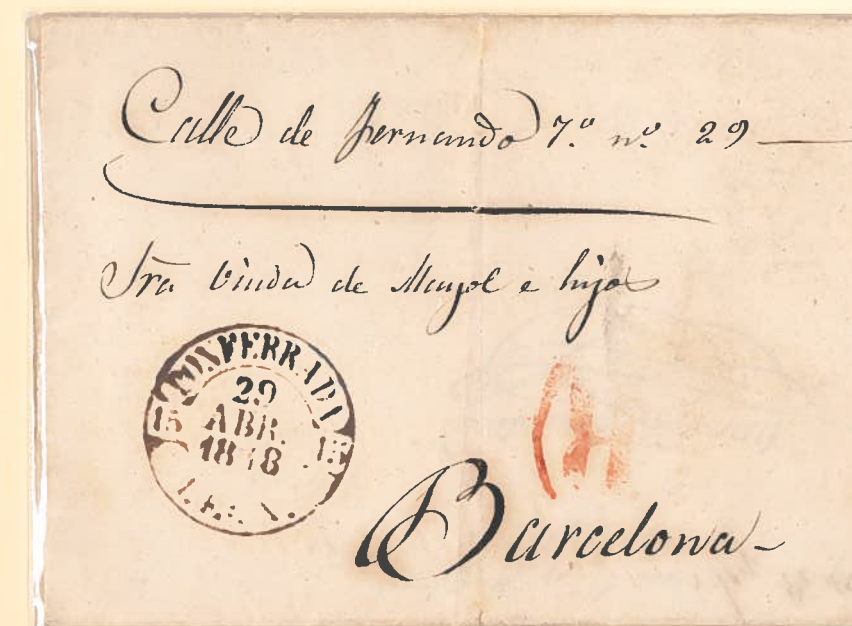 Calle de Fernando 7.º nº 29
Sra Viuda de Mayol e hijos
PONFERRADA
29
15 ABR. 15
1848
LEON
Barcelona